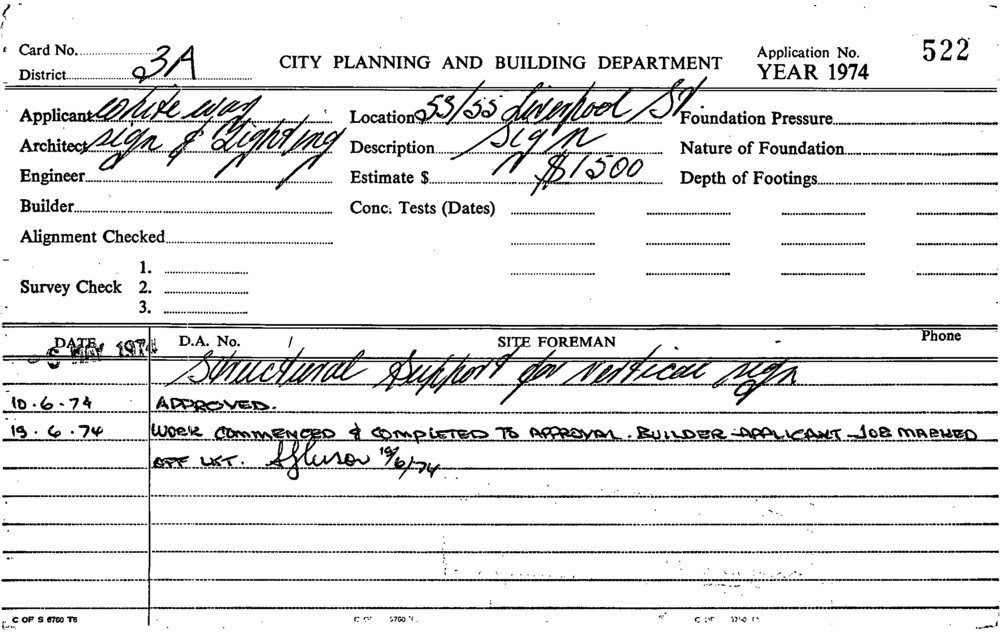 Card No.
District 3A
CITY PLANNING AND BUILDING DEPARTMENT
Application No. 522
YEAR 1974
Applicant White way
Architect Sign & Lighting
Engineer
Builder
Alignment Checked
Survey Check 1.
2.
3.
Location 53/55 Liverpool St
Description Sign
Estimate $ $1500
Conc. Tests (Dates)
Foundation Pressure
Nature of Foundation
Depth of Footings
DATE D.A. No. / SITE FOREMAN Phone
MAY 1974 Structural Support for vertical sign
10.6.74 APPROVED.
19.6.74 WORK COMMENCED & COMPLETED TO APPROVAL. BUILDER - APPLICANT - JOB MARKED
OFF LIST. 19/6/74
C OF S 6760 T6